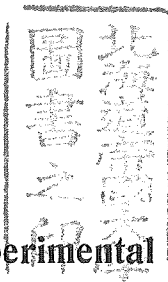 北海道帝國大學
圖書之印
perimental